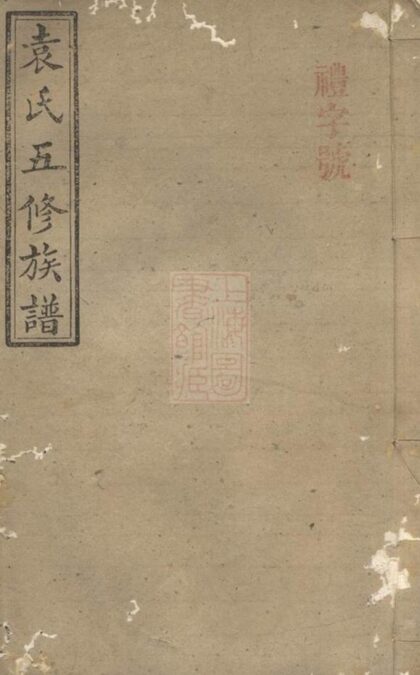 禮字號
上海圖書館藏
袁氏五修族譜